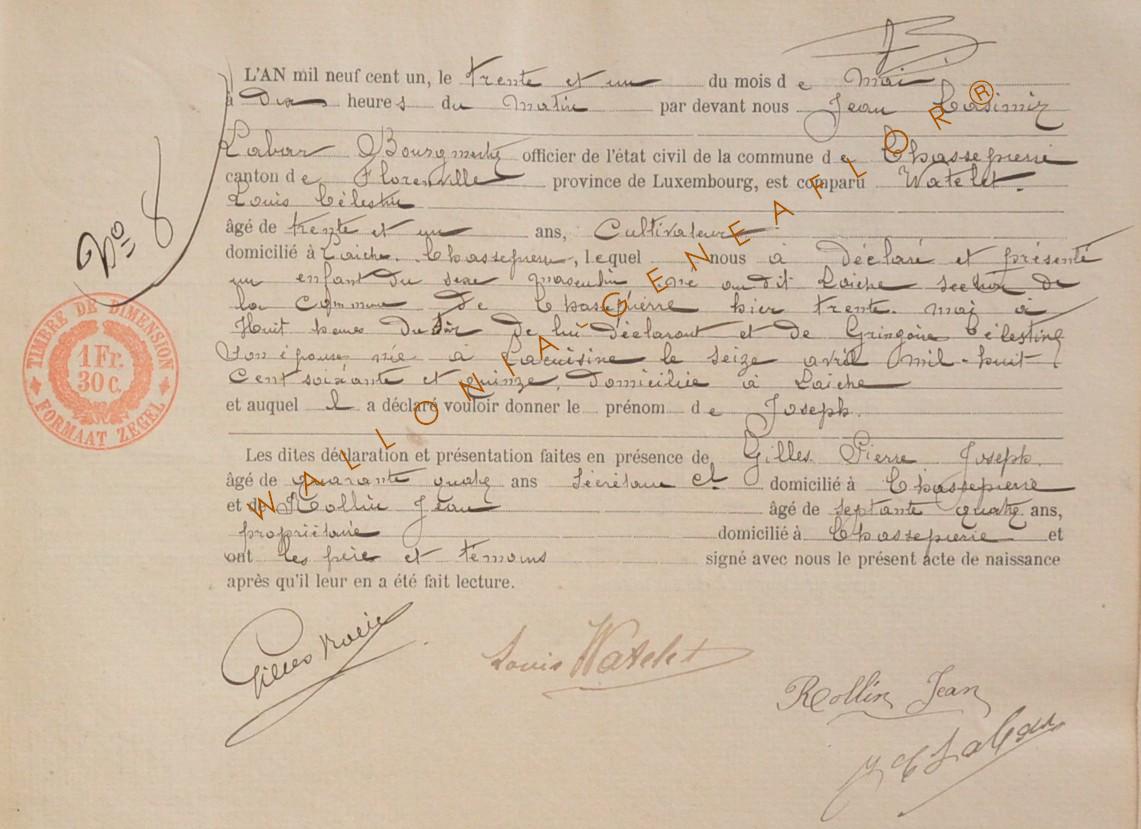 L'AN mil neuf cent un, le trente et un du mois de Mai
à Dix heures du Matin par devant nous Jean Casimir
Labar Bourgmestre officier de l'état civil de la commune de Chassepierre
canton de Florenville province de Luxembourg, est comparu Watelet
Louis Célestin
âgé de trente et un ans, Cultivateur
domicilié à Laiche. Chassepierre, lequel nous a déclaré et présenté
un enfant du sexe masculin né au dit Laiche section de
la Commune de Chassepierre hier trente mai à
Huit heures Du soir De lui déclarant et de Gringoire Célestine
Son épouse née à Lacuisine le seize avril mil-huit
Cent soixante et quinze, Domiciliée à Laiche
et auquel il a déclaré vouloir donner le prénom de Joseph.
Les dites déclaration et présentation faites en présence de Gilles Pierre Joseph.
âgé de quarante quatre ans Secrétaire cl domicilié à Chassepierre
et de Rollin Jean âgé de septante quatre ans,
propriétaire domicilié à Chassepierre et
ont les père et témoins signé avec nous le présent acte de naissance
après qu'il leur en a été fait lecture.
No 8
TIMBRE DE DIMENSION
1 Fr.
30 c.
FORMAAT ZEGEL
WALLONIA GENEAFLOR ®
Gilles
Louis Watelet
Rollin Jean
J C Labar